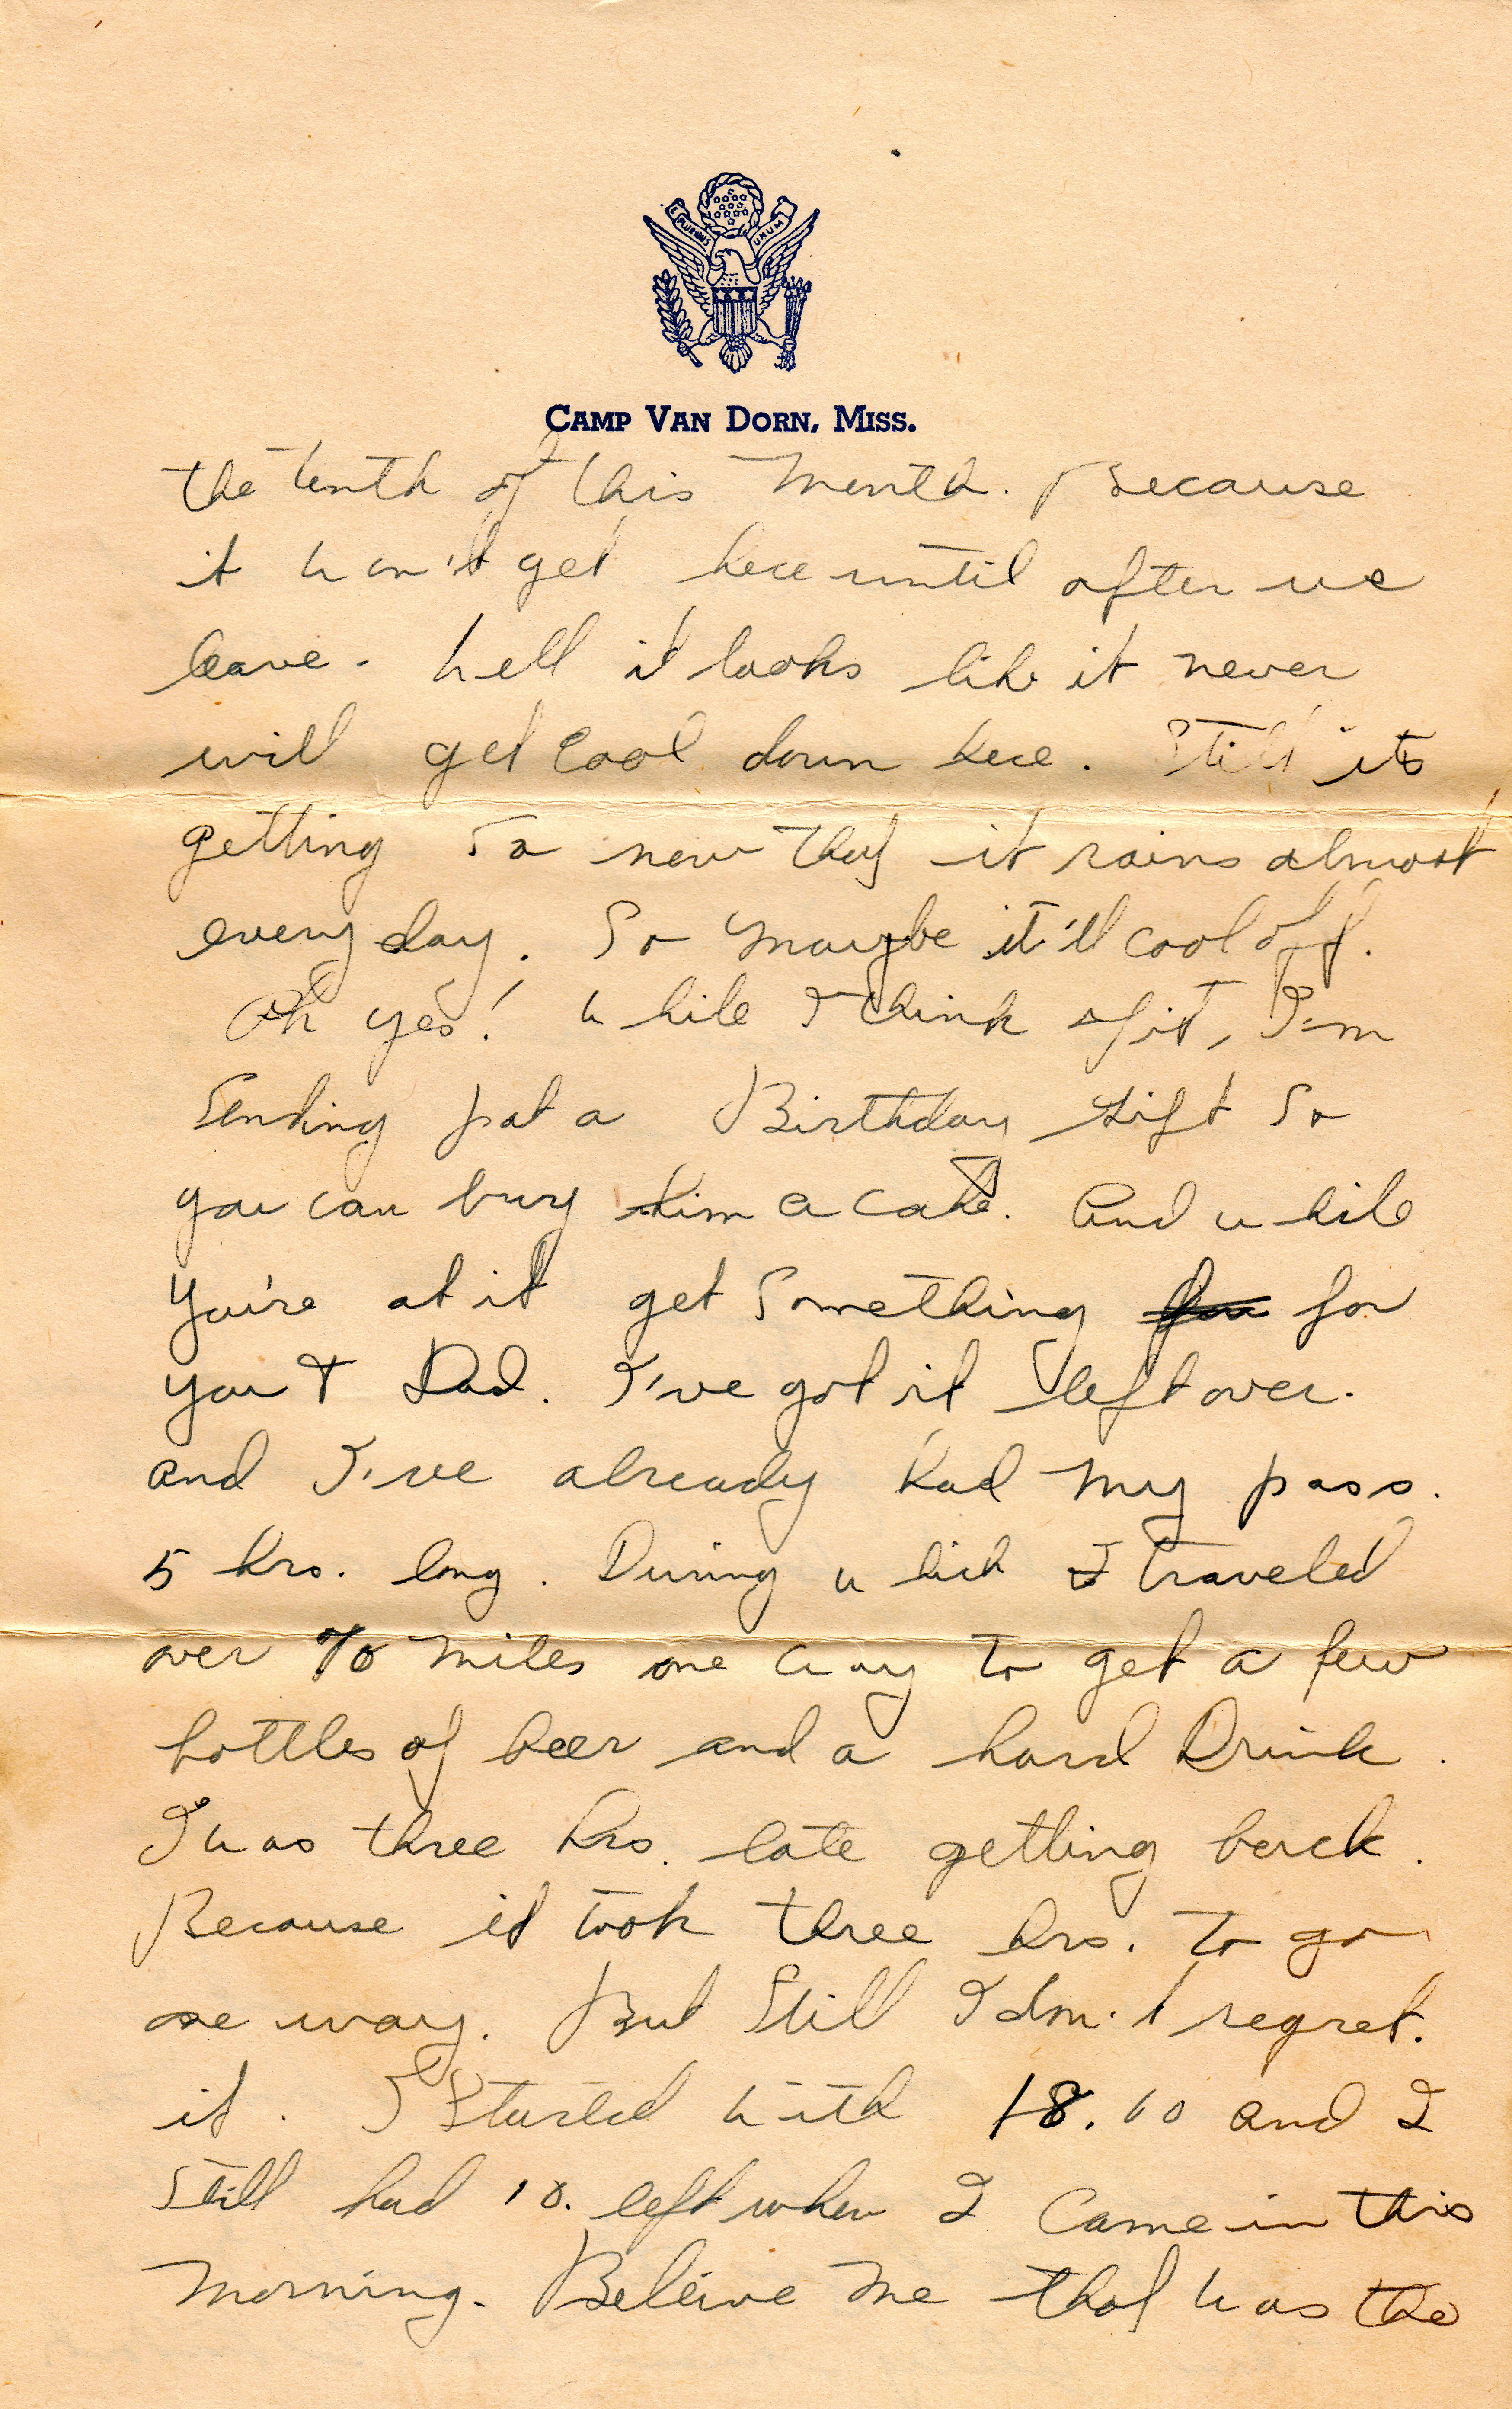 E PLURIBUS UNUM
CAMP VAN DORN, MISS.
the tenth of this month. Because
it won't get here until after we
leave. Well it looks like it never
will get cool down here. Still its
getting so now that it rains almost
every day. So maybe it'll cool off.
Oh yes! While I think of it, I'm
Sending pat a Birthday gift So
you can buy him a cake. And while
you're at it get Something for
you + Dad. I've got it left over.
and I've already had my pass.
5 hrs. long. During which I traveled
over 70 miles one way to get a few
bottles of beer and a hard Drink.
I was three hrs. late getting back.
Because it took three hrs. to go
one way. But Still I don't regret.
it. I Started with 18.00 and I
Still had 10. left when I Came in this
morning. Beleive me that was the